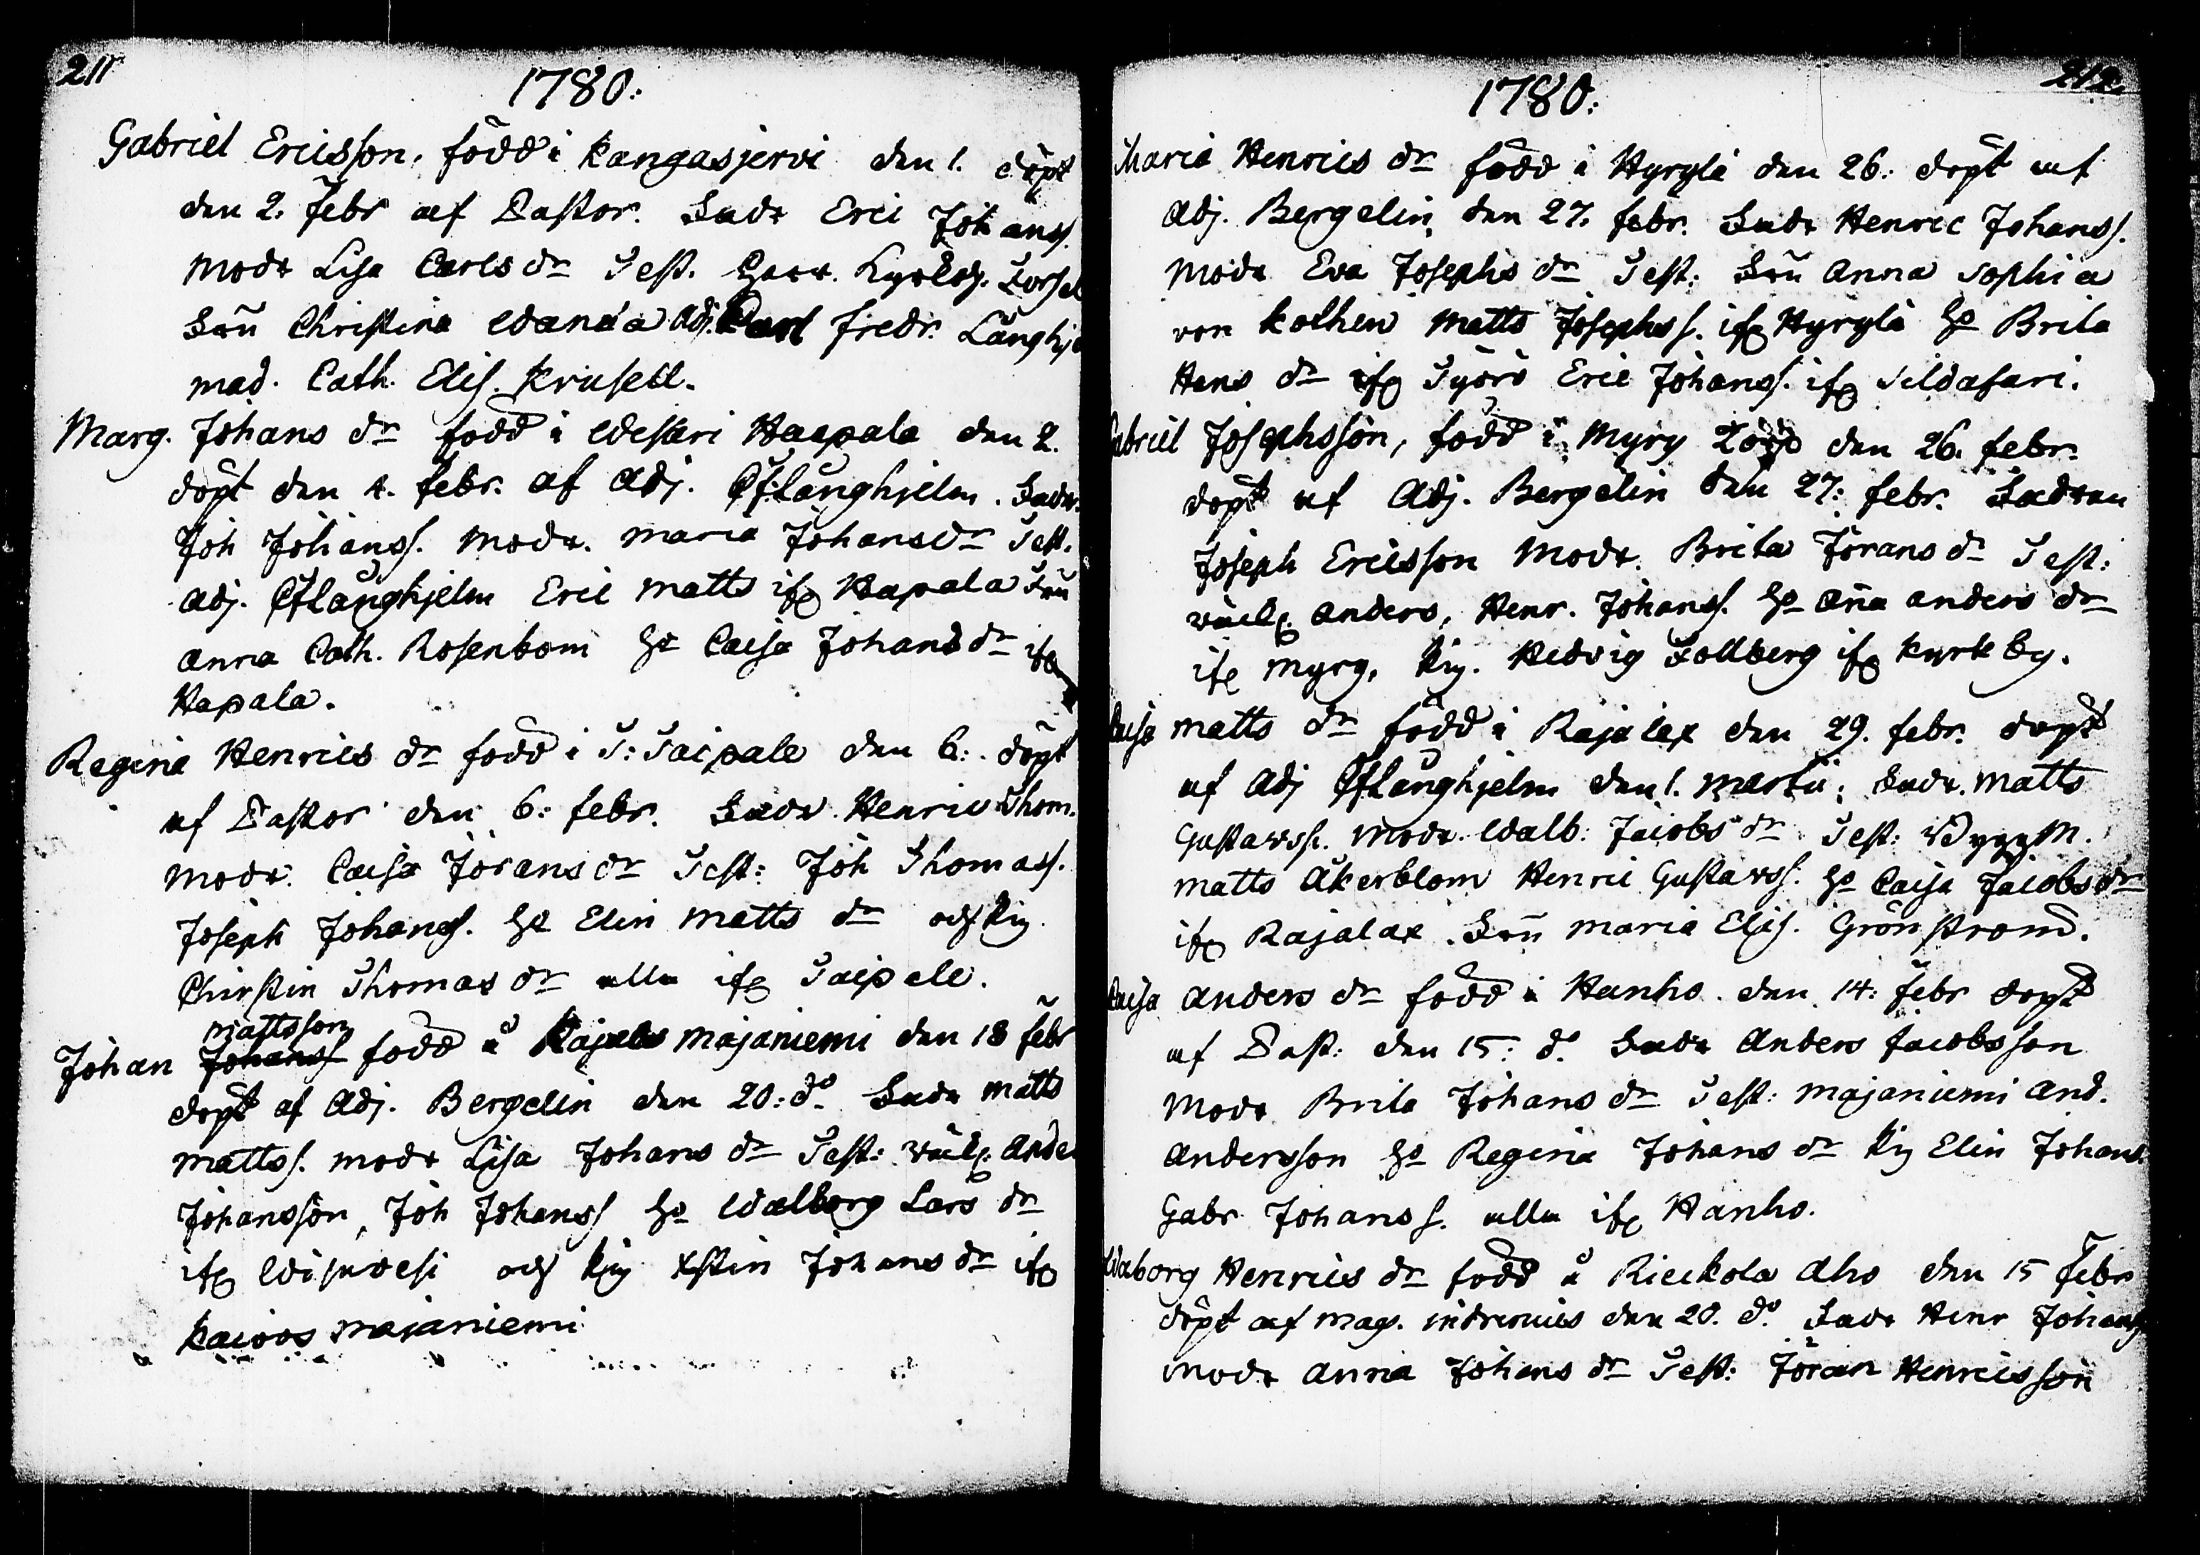 211
1780.
Gabriel Ericsson, född i Kangasjervi den 1. döpt
den 2. Febr af Pastor. Fadr Eric Johanss.
Modr Lisa Carls dr Test. Herr Kyrkoh.
Fru Christina Wanda Adj. Carl Fredr. Långhje
Mad. Cath. Elis. Krusell.
Marg. Johans dr född i Wesiari Haapala den 2.
döpt den 4. Febr. af Adj. CFLånghjelm. Fadr.
Joh Johanss. Modr. Maria Johansdr Test.
Adj. CFLånghjelm Eric Matts ifr Hapala Fru
Anna Cath. Rosenbom Ho Caisa Johans dr ifr
Hapala.
Regina Henrics dr född i T: Taipale den 6: döpt
af Pastor den 6: febr. Fadr. Henric Thom.
Modr. Caisa Jörans dr Test: Joh Thomass.
Joseph Johanss. Ho Elin Matts dr och Pig
Christin Thomas dr alla ifr Taipale.
Mattsson
Johan Johanss född å Majaniemi den 18 febr
döpt af Adj. Bergelin den 20: do. Fadr Matts
Mattss. Modr Lisa Johans dr Test: Ande
Johansson, Joh Johanss Ho Walborg Lars dr
ifr och Pig Xstin Johans dr ifr
Majaniemi
212.
1780.
Maria Henrics dr född i Hyrylä den 26: döpt af
Adj. Bergelin den 27. febr. Fadr Henric Johanss.
Modr Eva Josephs dr Test: Fru Anna Sophia
von Kothen Matts Josephss. ifr Hyrylä Ho Brita
Hens dr ifr Eric Johanss. ifr Sildasari.
Gabriel Josephsson, född i Myry Torp den 26. febr.
döpt af Adj. Bergelin den 27: febr. Fadren
Joseph Ericsson Modr. Brita Jörans dr Test:
Anders, Henr. Johanss. Ho Ana Anders dr
ifr Myry, Pig. Hedvig Follberg ifr Kyrkby.
Caisa Matts dr född i Rajalax den 29. febr. döpt
af Adj CFLånghjelm den 1. Martii. Fadr. Matts
Gustavss. Modr. Walb: Jacobs dr Test: ByggM.
Matts Åkerblom Henric Gustavss. Ho Caisa Jacobs dr
ifr Rajalax. Fru Maria Elis. Grönström.
Caisa Anders dr född i Hanho den 14: febr döpt
af Past: den 15: do. Fadr Anders Jacobsson
Modr Brita Johans dr Test: Majaniemi And.
Andersson Ho Regina Johans dr Pig Elin Johans
Gabr Johanss. alla ifr Hanho.
Waborg Henrics dr född å Rieckola Aho den 15 febr
döpt af Mag. Indrenius den 20. do Fadr Henr Johanss
Modr Anna Johans dr Test: Jöran Henricsson